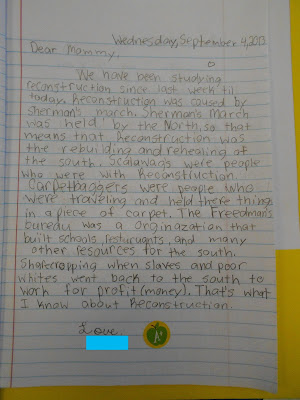 Wednesday, September 4, 2013
Dear Mommy,
We have been studying
reconstruction since last week til
today. Reconstruction was caused by
Sherman's march. Sherman's March
was held by the North, so that
means that Reconstruction was
the rebuilding and rehealing of
the south. Scalawags were people
who were with Reconstruction.
Carpetbaggers were people who
were traveling and held there things
in a piece of carpet. The Freedman's
buredu was a Orginazation that
built schools, resturaunts, and many
other resources for the south.
Sharecropping when slaves and poor
whites went back to the south to
work for profit (money). That's what
I know about Reconstruction.
Love,
A+